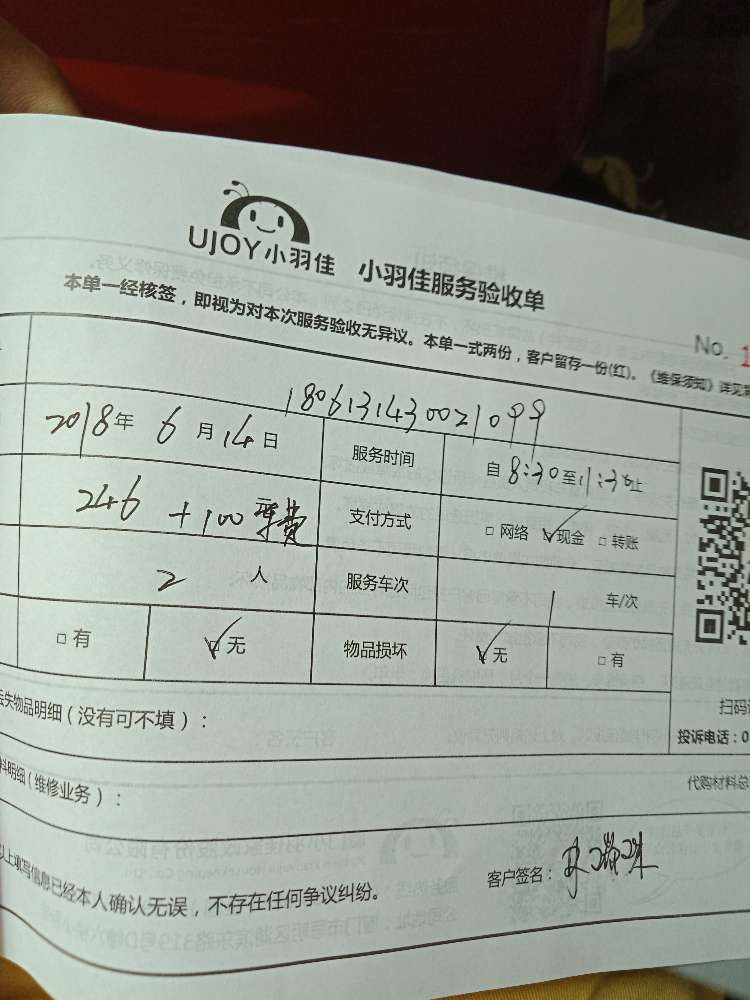 UJOY小羽佳 小羽佳服务验收单
No. 1
本单一经核签，即视为对本次服务验收无异议。本单一式两份，客户留存一份(红)。《维保须知》详见背
1806131430021099
2018年 6月14日 服务时间 自8:30至11:30止
246 +100 支付方式 □网络 ☑现金 □转账
2人 服务车次 1 车/次
□有 ☑无 物品损坏 ☑无 □有
丢失物品明细（没有可不填）：
扫码
投诉电话：0
料明细（维修业务）：
代购材料总
以上填写信息已经本人确认无误，不存在任何争议纠纷。
客户签名：